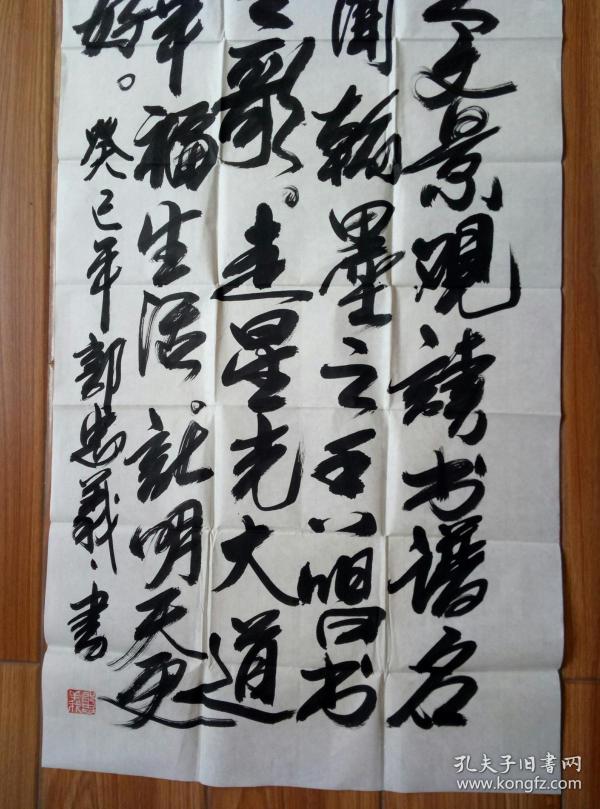 文景观读书谱名
闻翰墨之唱书
之歌。走星光大道
福生活。明天更
好。癸巳年郭忠義書
孔夫子旧书网
www.kongfz.com